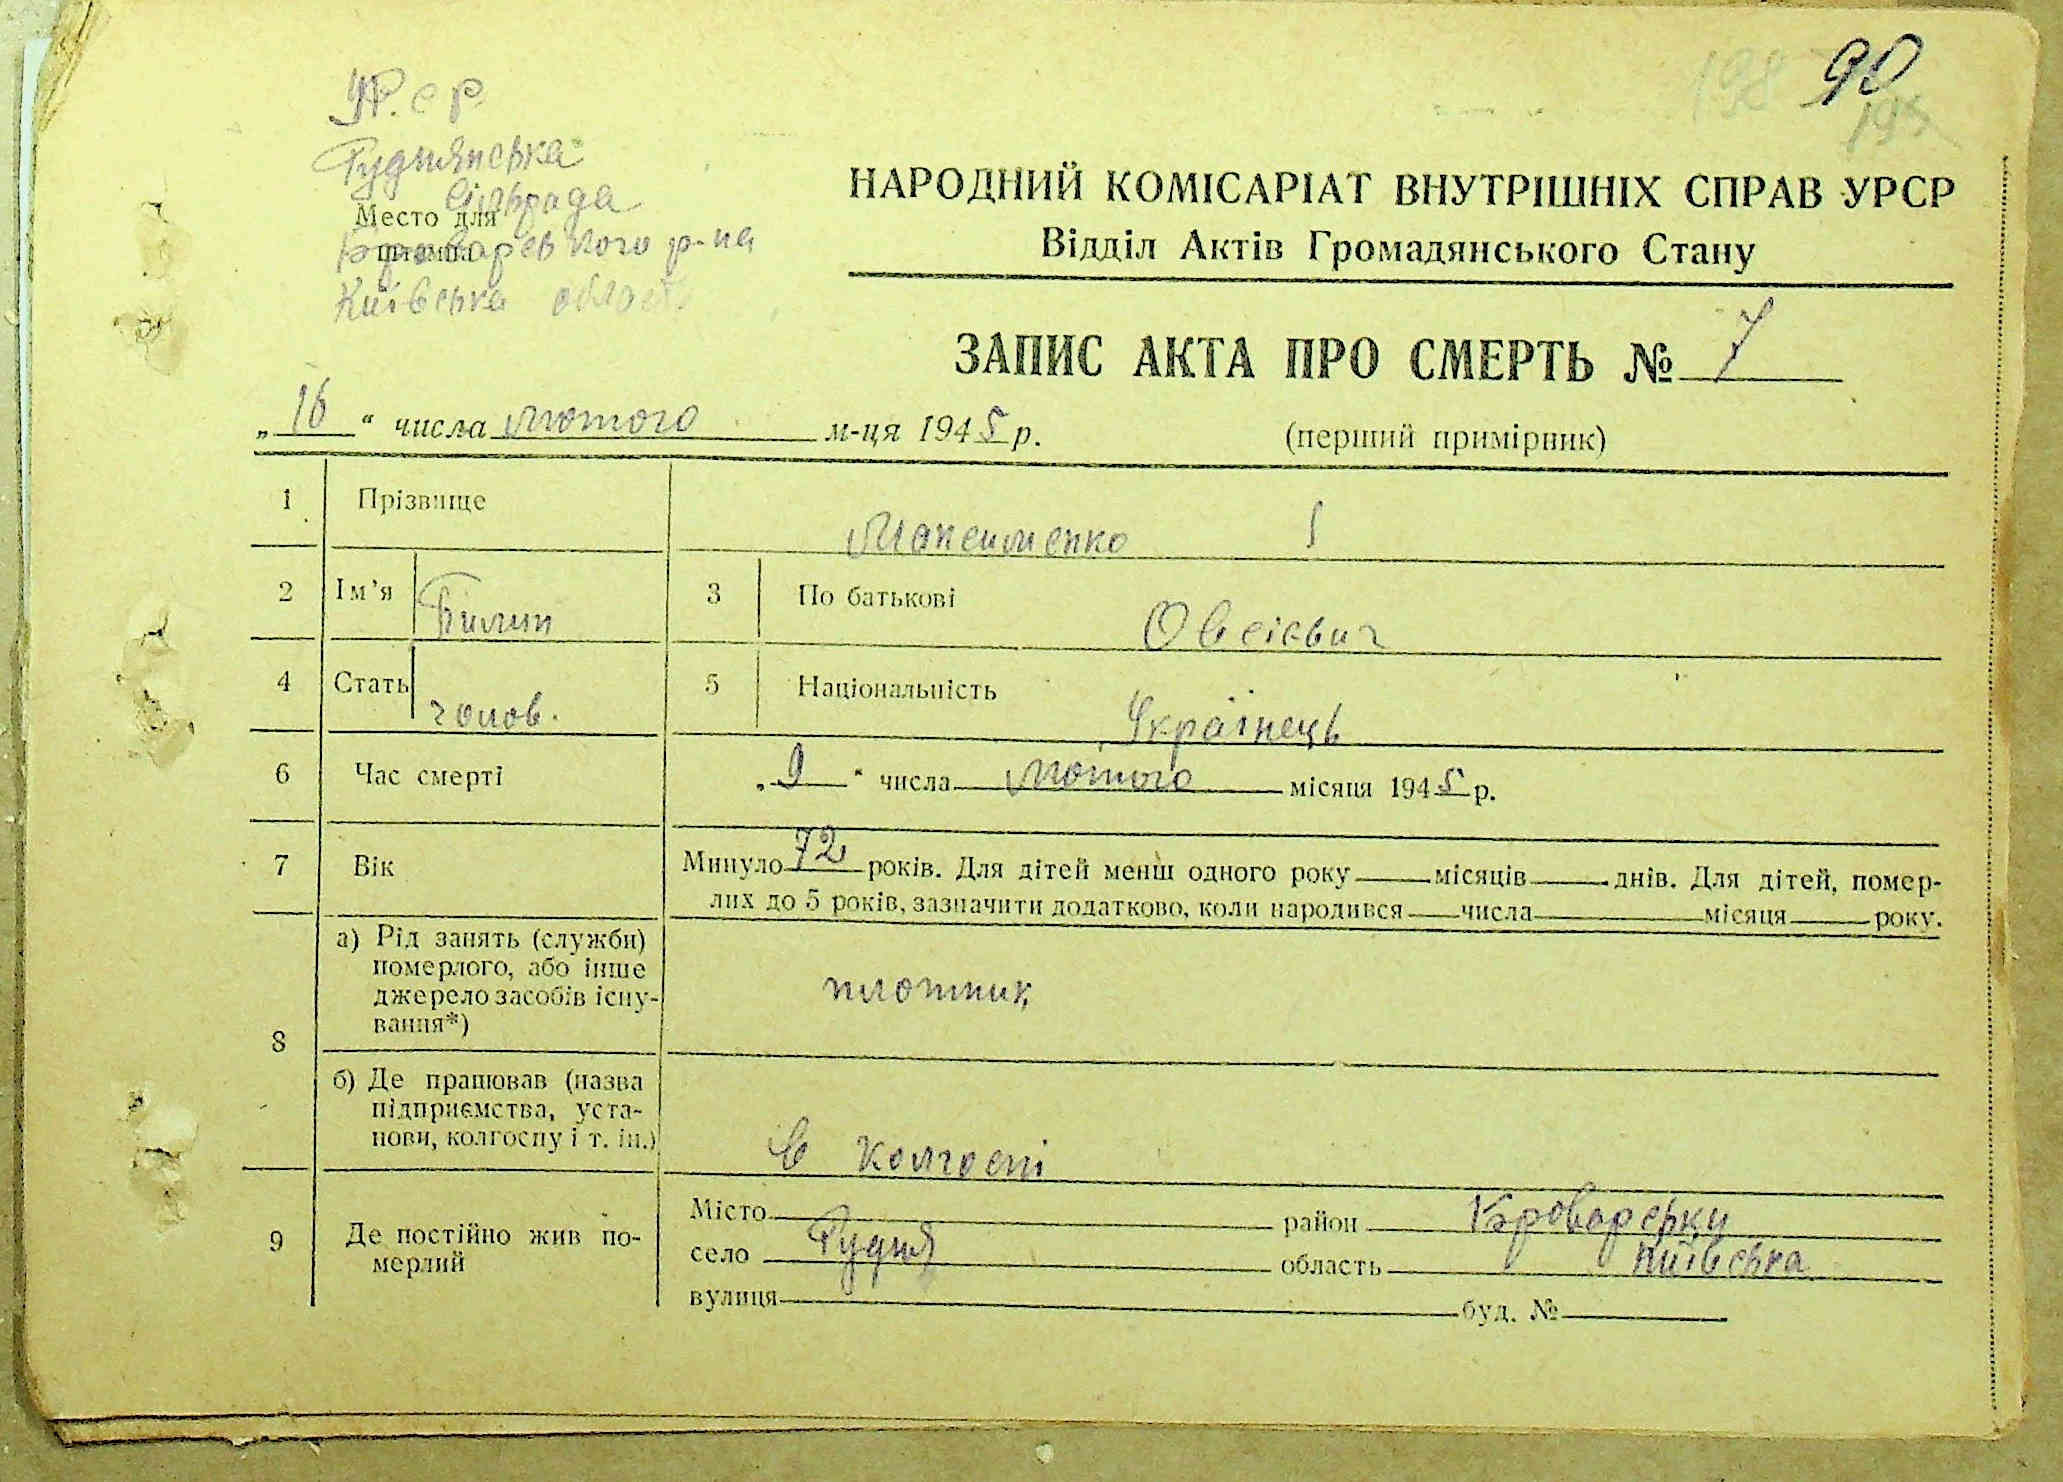 90
198
195
УРСР
Руднянська
сільрада
Место для
штампа
Броварського р-на
Київська область
НАРОДНИЙ КОМІСАРІАТ ВНУТРІШНІХ СПРАВ УРСР
Відділ Актів Громадянського Стану
ЗАПИС АКТА ПРО СМЕРТЬ № 7
„16“ числа лютого м-ця 1945 р. (перший примірник)
1 Прізвище Максименко
2 Ім’я Пилип 3 По батькові Овсієвич
4 Стать чолов. 5 Національність Українець
6 Час смерті „9“ числа лютого місяця 1945 р.
7 Вік Минуло 72 років. Для дітей менш одного року місяців днів. Для дітей, помер-
лих до 5 років, зазначити додатково, коли народився числа місяця року.
8 а) Рід занять (служби)
померлого, або інше
джерело засобів існу-
вання*)
плотник
б) Де працював (назва
підприємства, уста-
нови, колгоспу і т. ін.)
в колгоспі
9 Де постійно жив по-
мерлий
Місто район Броварську
село Рудня область Київська
вулиця буд. №